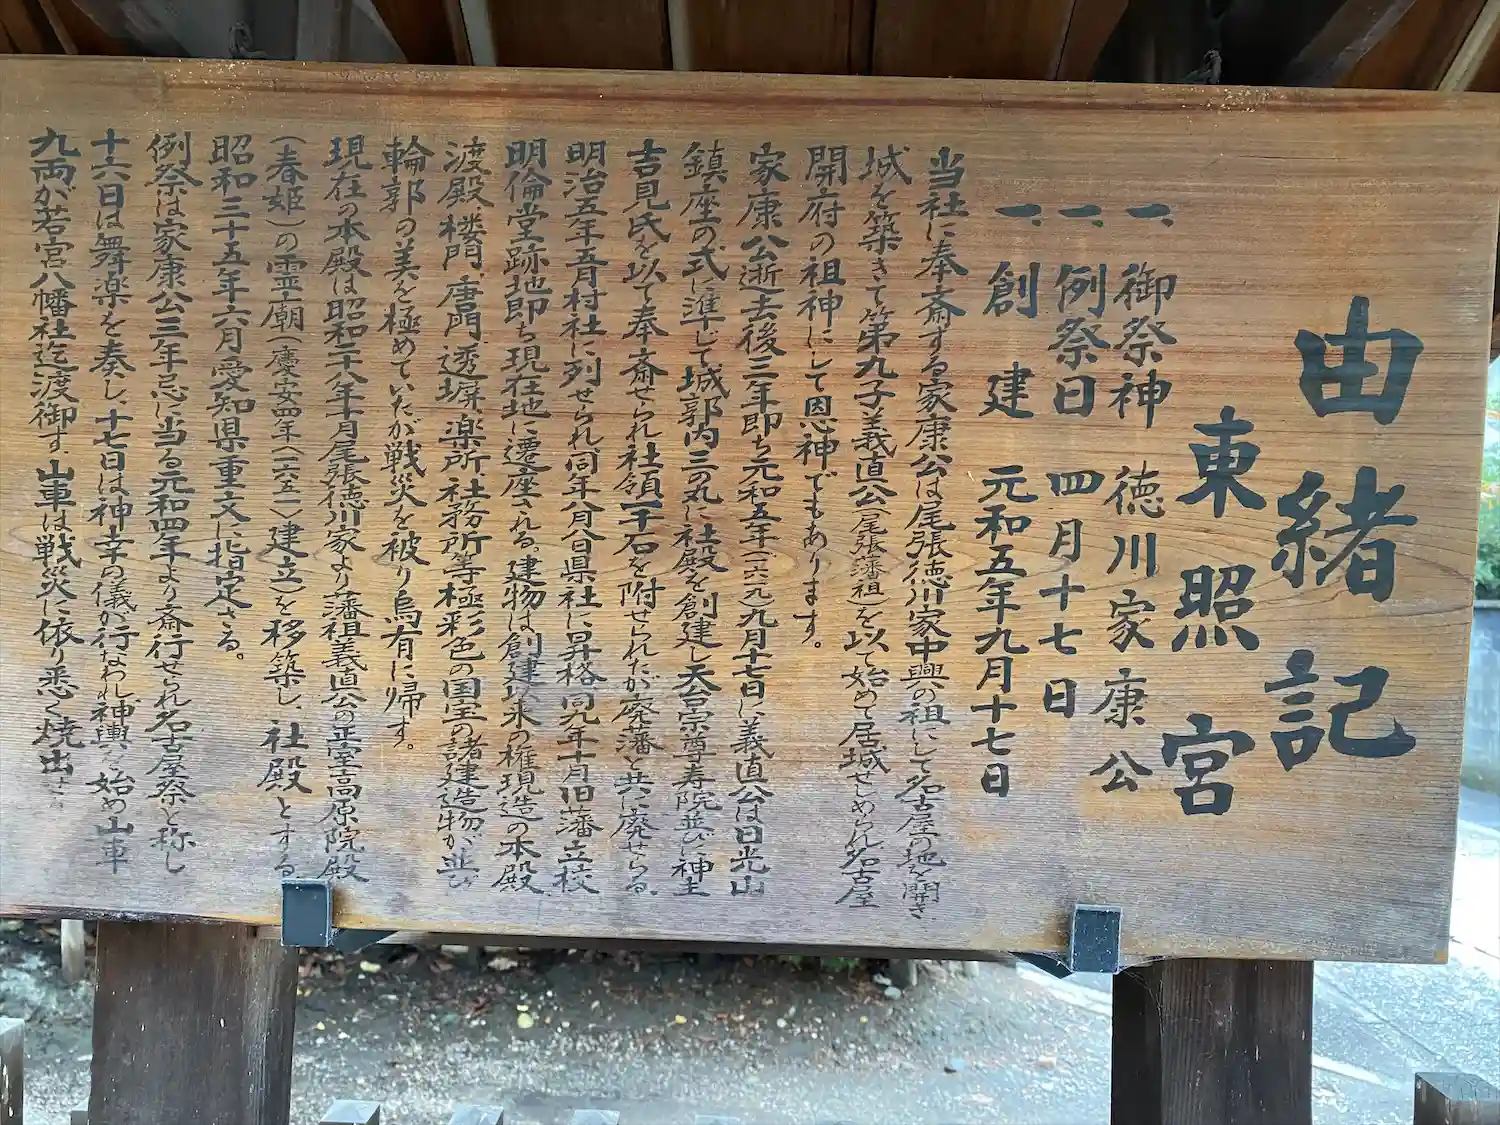 由緒記
東照宮
一、御祭神 徳川家康公
一、例祭日 四月十七日
一、創建 元和五年九月十七日
当社に奉斎する家康公は尾張徳川家中興の祖にして名古屋の地を開き
城を築きて第九子義直公(尾張藩祖)を以て始めて居城せしめられ名古屋
開府の祖神にして恩神でもあります。
家康公逝去後三年即ち元和五年(一六一九)九月十七日に義直公は日光山
鎮座の式に準じて城郭内三の丸に社殿を創建し天台宗尊寿院並びに神主
吉見氏を以て奉斎せられ社領一千石を附せられたが廃藩と共に廃せらる。
明治五年五月村社に列せられ、同年八月八日県社に昇格、同九年十月旧藩立校
明倫堂跡地即ち現在地に遷座される。建物は創建以来の権現造の本殿
渡殿、楼門、唐門、透塀、楽所、社務所等極彩色の国宝の諸建造物が並び
輪郭の美を極めていたが戦災を被り烏有に帰す。
現在の本殿は昭和二十八年十月尾張徳川家より藩祖義直公の正室高原院殿
(春姫)の霊廟(慶安四年(一六五一)建立)を移築し、社殿とする
昭和三十五年六月、愛知県重文に指定さる。
例祭は家康公三年忌に当る元和四年より斎行せられ名古屋祭と称し
十六日は舞楽を奏し、十七日は神幸の儀が行なわれ神輿を始め山車
九両が若宮八幡社迄渡御す、山車は戦災に依り悉く焼出